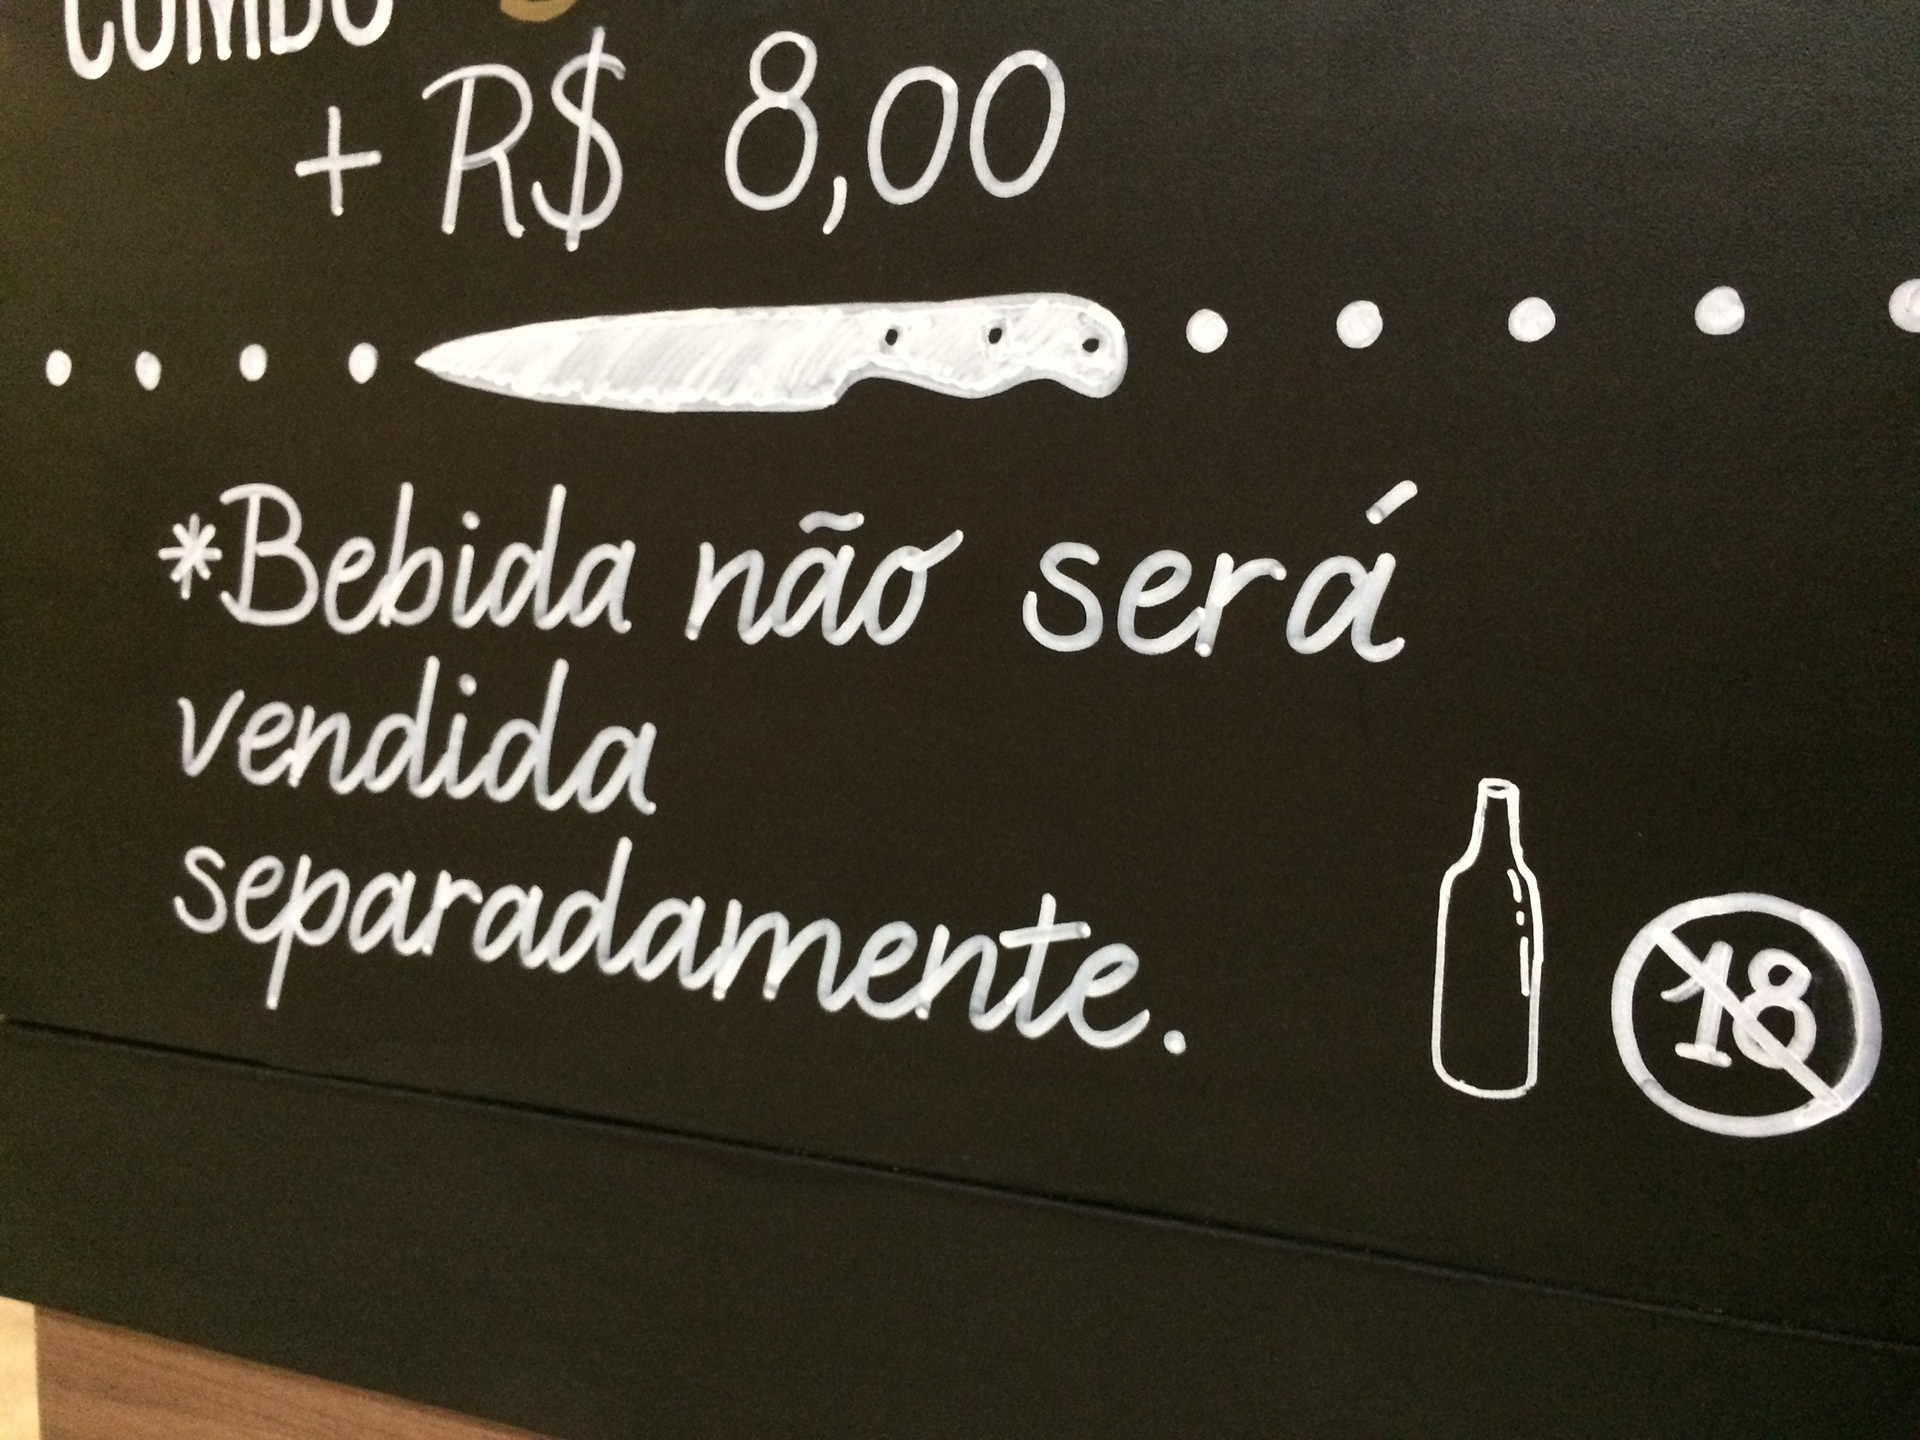 COMBO
+ R$ 8,00
*Bebida não será
vendida
separadamente.
18